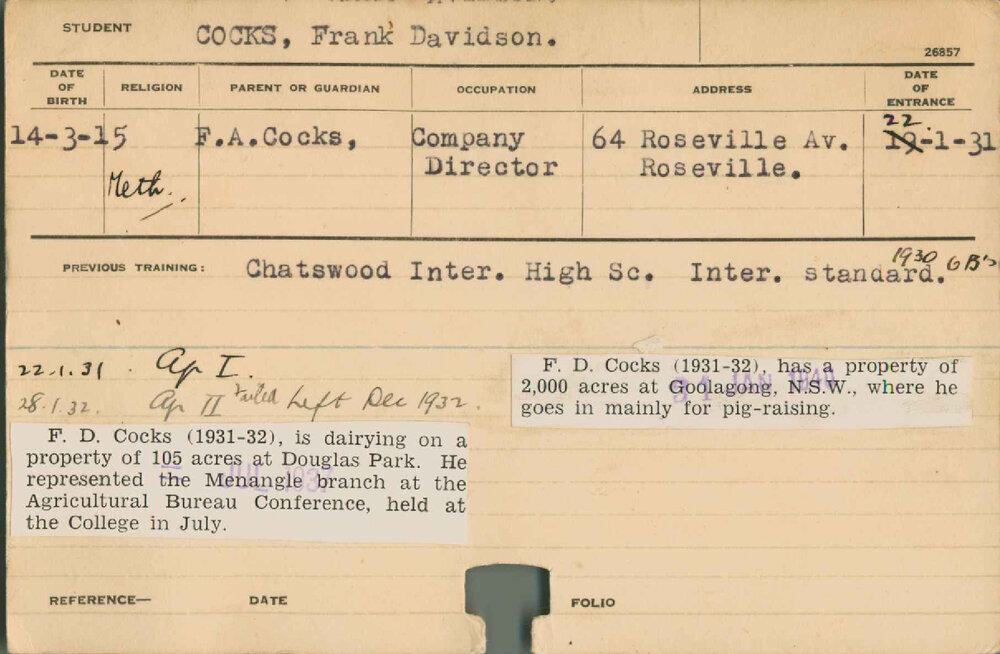 STUDENT COCKS, Frank Davidson.
26857
DATE OF BIRTH RELIGION PARENT OR GUARDIAN OCCUPATION ADDRESS DATE OF ENTRANCE
22
14-3-15 F.A.Cocks, Company 64 Roseville Av. 19-1-31
Director Roseville.
Meth.
1930 6 B's
PREVIOUS TRAINING: Chatswood Inter. High Sc. Inter. standard.
22.1.31 . Ap I.
28.1.32. Ap II Failed Left Dec 1932.
F. D. Cocks (1931-32), has a property of
2,000 acres at Goolagong, N.S.W., where he
goes in mainly for pig-raising.
JAN 1940
F. D. Cocks (1931-32), is dairying on a
property of 105 acres at Douglas Park. He
represented the Menangle branch at the
Agricultural Bureau Conference, held at
the College in July.
JUL 1937
REFERENCE— DATE FOLIO